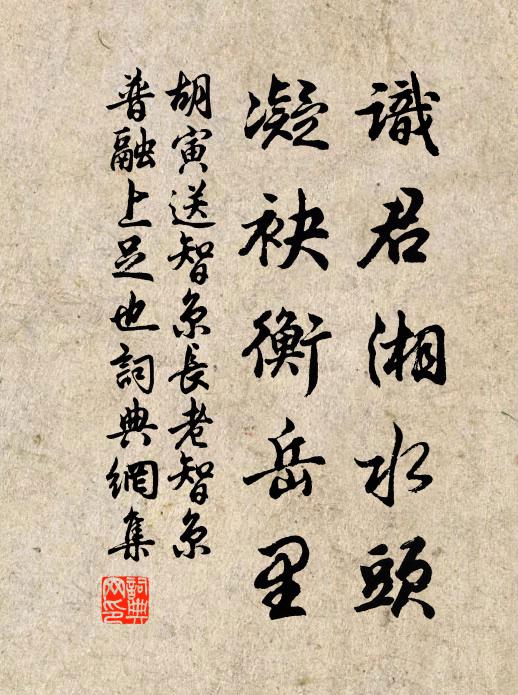 識君湘水頭
凝袂衡岳里
胡寅送智京長老智京
普融上足也詞典網集
詞典
网印